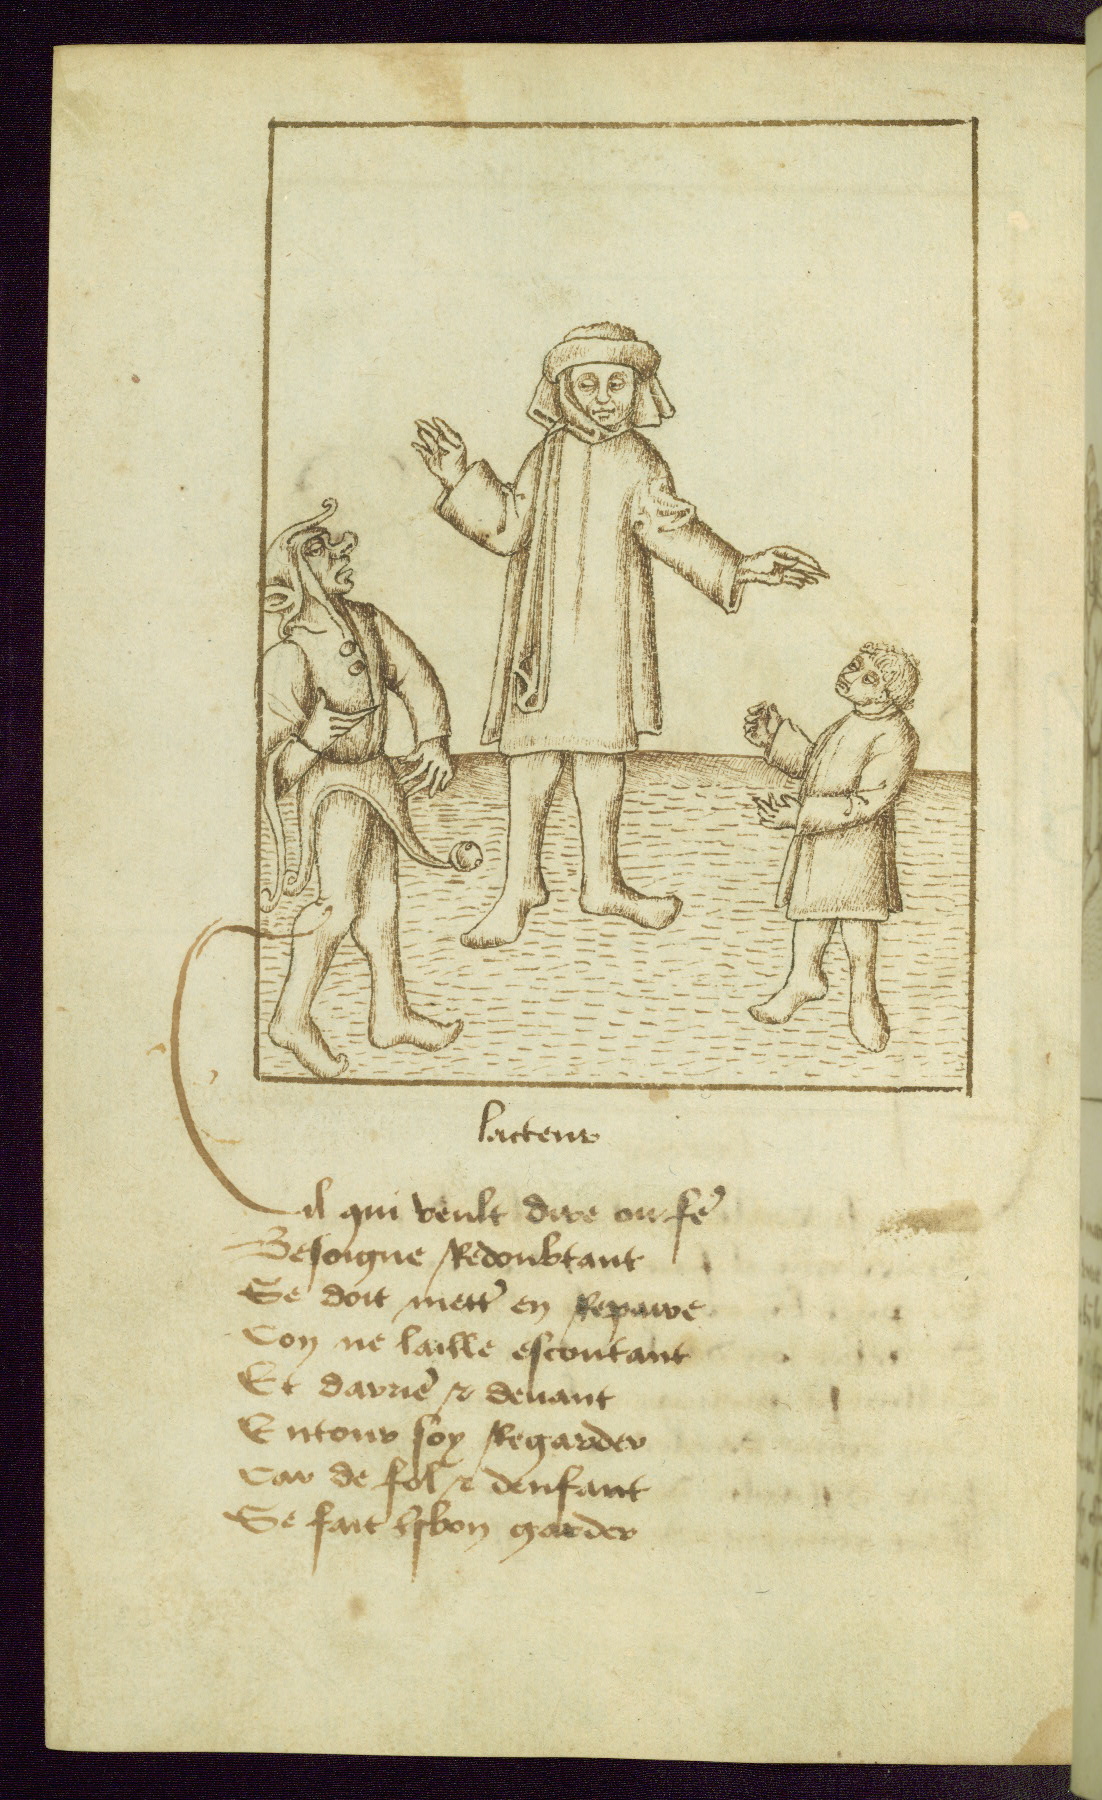 lacteur
Cil qui veult dire ou fe'
Besoigne Redoubtant
Se doit mett' en Repaire
Con ne laille escoutant
Et darrie' et deuant
Entour soy Regarder
Car de fol et denfant
Se fait bon garder